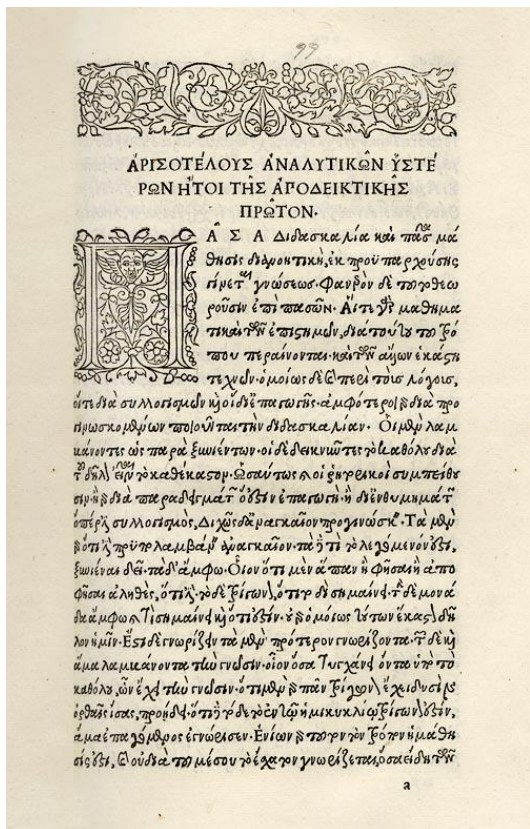 99
ἈΡΙΣΟΤΈΛΟΥΣ ἈΝΑΛΥΤΙΚΩ͂Ν ὙΣΤΈ
ΡΩΝ ἬΤΟΙ ΤΗ͂Σ ἈΠΟΔΕΙΚΤΙΚΗ͂Σ
ΠΡΩ͂ΤΟΝ·
ΠΑ͂ΣΑ διδασκαλία καὶ πᾶσα μά
θησις διανοητικὴ, ἐκ προϋπαρχούσης
γίνεται γνώσεως· Φανερὸν δὲ τοῦτο θεω
ροῦσιν ἐπὶ πασῶν· Αἵ τε γὰρ μαθημα
τικαὶ τῶν ἐπιστημῶν, διὰ τούτου τοῦ τρό
που περαίνονται· καὶ τῶν ἄλλων ἑκάστη
τεχνῶν· ὁμοίως δὲ καὶ περὶ τοὺς λόγοις,
οἵ τε διὰ συλλογισμῶν καὶ οἱ δι' ἐπαγωγῆς· ἀμφότεροι γὰρ διὰ προ
γινωσκομένων ποιοῦνται τὴν διδασκαλίαν· Οἱ μὲν λαμ
βάνοντες ὡς παρὰ ξυνιέντων· οἱ δὲ δεικνύντες τὸ καθόλου διὰ
τοῦ δῆλον εἶναι τὸ καθέκαστον· Ὡσαύτως καὶ οἱ ῥητορικοὶ συμπείθου
σιν· ἢ γὰρ διὰ παραδειγμάτων ὅ ἐστιν ἐπαγωγὴ· ἢ δι' ἐνθυμημάτων
ὅπερ ἐστὶ συλλογισμὸς, Διχῶς δ' ἀναγκαῖον προγινώσκειν· Τὰ μὲν
γὰρ ὅτι ἐστὶ προϋπολαμβάνειν ἀναγκαῖον· τὰ δὲ τί τὸ λεγόμενον ἐστι,
ξυνιέναι δεῖ· τὰ δ' ἄμφω· Οἷον ὅτι μὲν ἅπαν ἢ φῆσαι ἢ ἀπο
φῆσαι ἀληθὲς, ὅτι ἐστὶ· τὸ δὲ τρίγωνον, ὅτι τοδὶ σημαίνει· τὴν δὲ μονά
δα ἄμφω καὶ τί σημαίνει καὶ ὅτι ἐστιν· οὐ γὰρ ὁμοίως τούτων ἕκαστον δῆ
λον ἡμῖν· Ἔστι δὲ γνωρίζειν τὰ μὲν πρότερον γνωρίζοντα· τῶν δὲ καὶ
ἅμα λαμβάνοντα τὴν γνῶσιν· οἷον ὅσα τυγχάνει ὄντα ὑπὸ τὸ
καθόλου, ὧν ἔχει τὴν γνῶσιν· ὅτι μὲν γὰρ πᾶν τρίγωνον ἔχει δυσὶν
ὀρθαῖς ἴσας, προῄδει· ὅτι δὲ τόδε τὸ ἐν τῷ ἡμικυκλίῳ τρίγωνόν ἐστιν,
ἅμα ἐπαγόμενος ἐγνώρισεν· Ἐνίων γὰρ τοῦτον τὸν τρόπον ἡ μάθη
σίς ἐστι, καὶ οὐ διὰ τοῦ μέσου τὸ ἔσχατον γνωρίζεται, ὅσα εἴδη τῶν
a